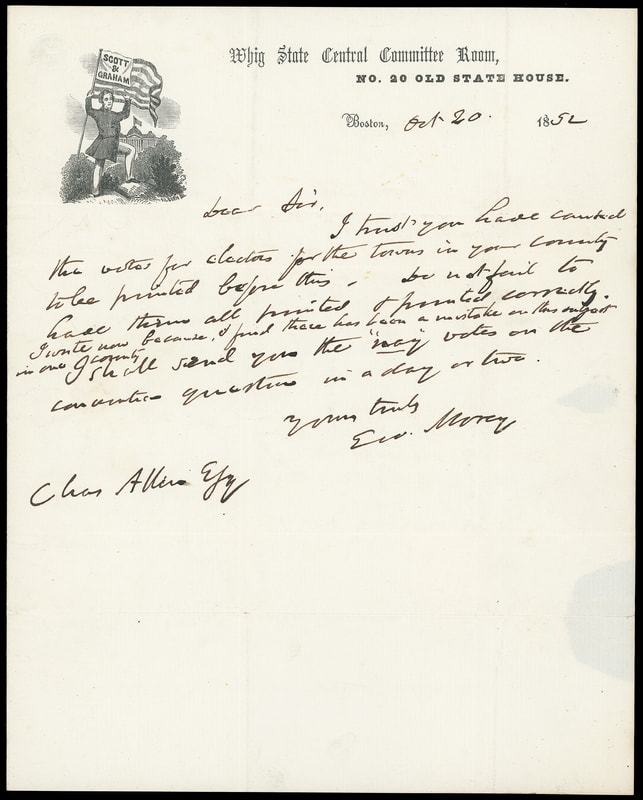 SCOTT
&
GRAHAM
Whig State Central Committee Room,
NO. 20 OLD STATE HOUSE.
Boston, Oct 20. 1852
Dear Sir.
I trust you have caused
the votes for electors for the towns in your county
to be printed before this. Do not fail to
have them all printed & printed correctly.
I write now because, I find there has been a mistake on this subject
in one county
I shall send you the "nay" votes on the
convention question in a day or two.
Yours truly
Geo. Morey
Chas Allen Esq